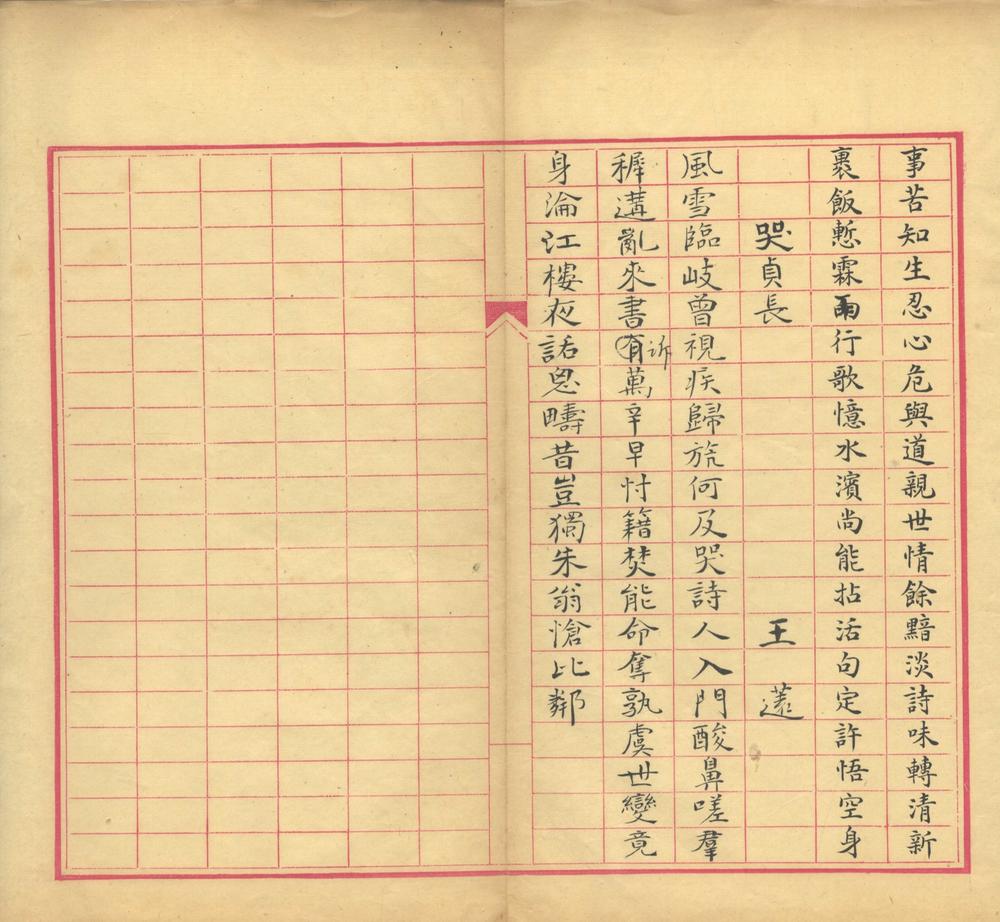 事苦知生忍心危與道親世情餘黯淡詩味轉清新
裹飯慙霖雨行歌憶水濱尚能拈活句定許悟空身
哭貞長 王薳
風雪臨岐曾視疾歸旐何及哭詩人入門酸鼻嗟羣
穉遘亂來書有訴萬辛早忖籍焚能命奪孰虞世變竟
身淪江樓夜話恖疇昔豈獨朱翁愴比鄰